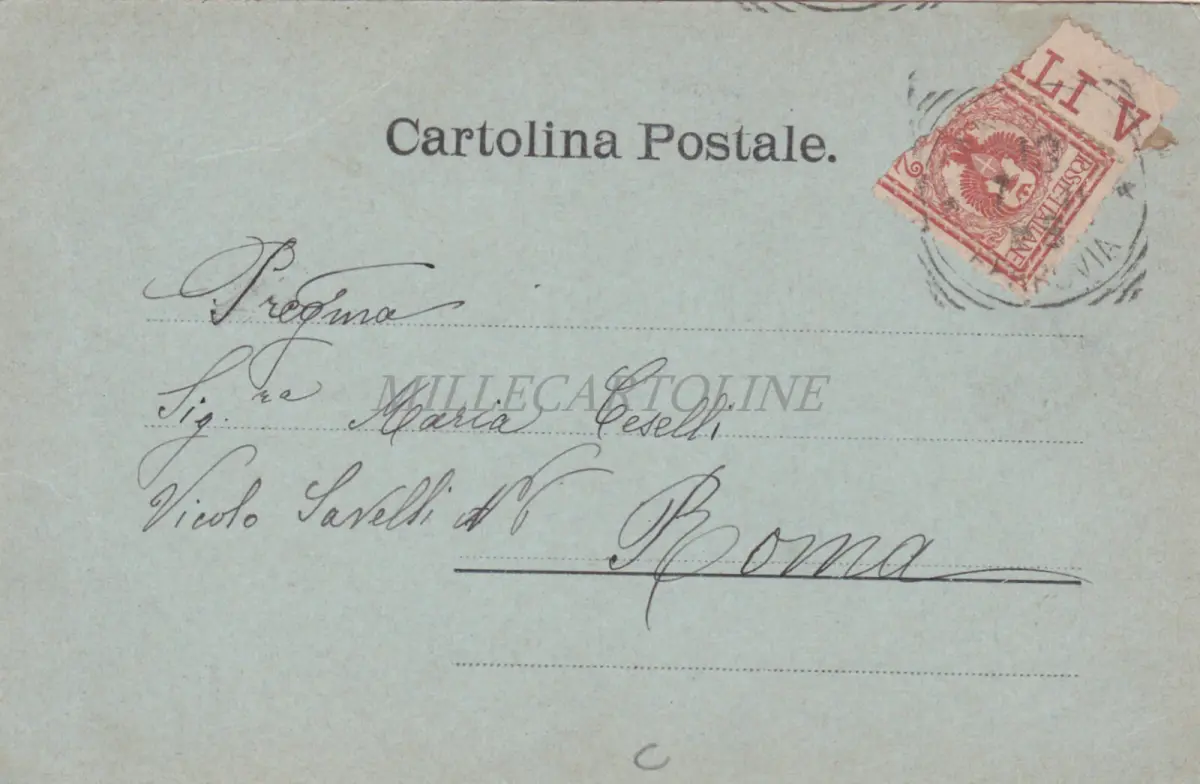 Cartolina Postale.
A ITA
2
POSTE ITALIANE
13
FERROVIA
Preg̃ma
Sig.ra Maria Ceselli
Vicolo Savelli N
Roma
MILLECARTOLINE
C